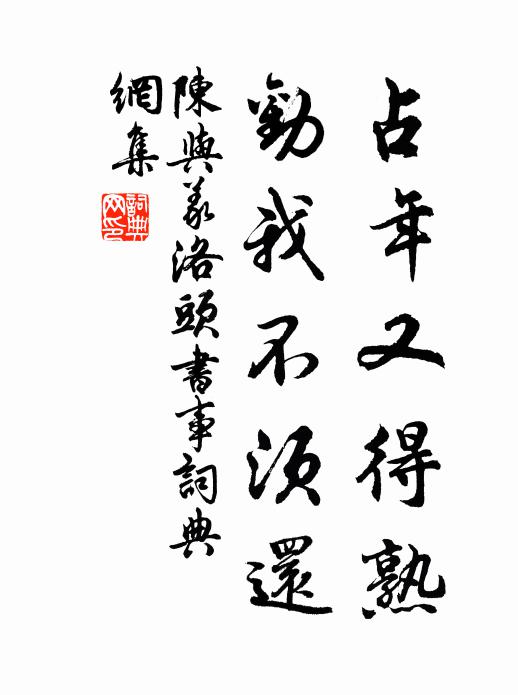 占年又得熟
勸我不須還
陳與義洛頭書事詞典
網集
詞典
网印